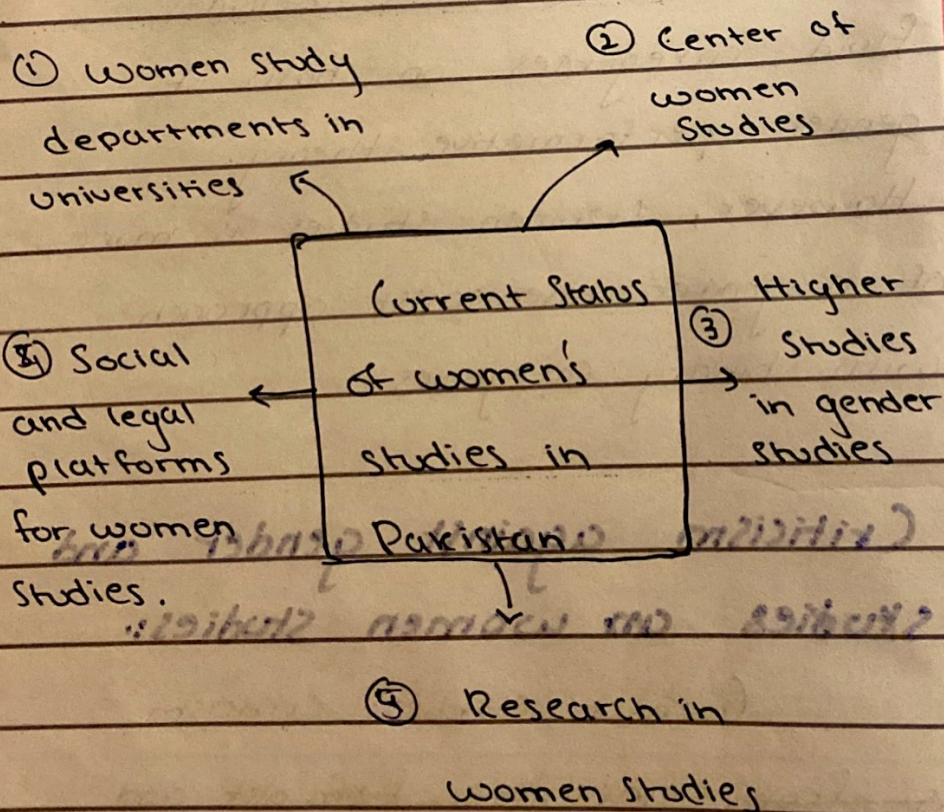 ① Women study
departments in
universities
② Center of
women
Studies
Current Status
of women's
studies in
Pakistan
③ Higher
Studies
in gender
studies
④ Social
and legal
platforms
for women
studies.
⑤ Research in
women studies
Criticism against gender and
studies on women studies: